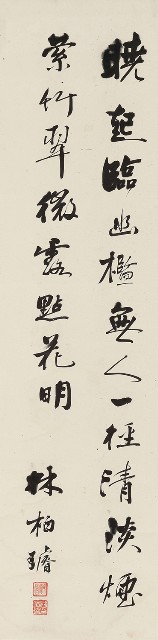 曉起臨幽檻無人一徑清淡煙
縈竹翠微露點花明
林栢璿